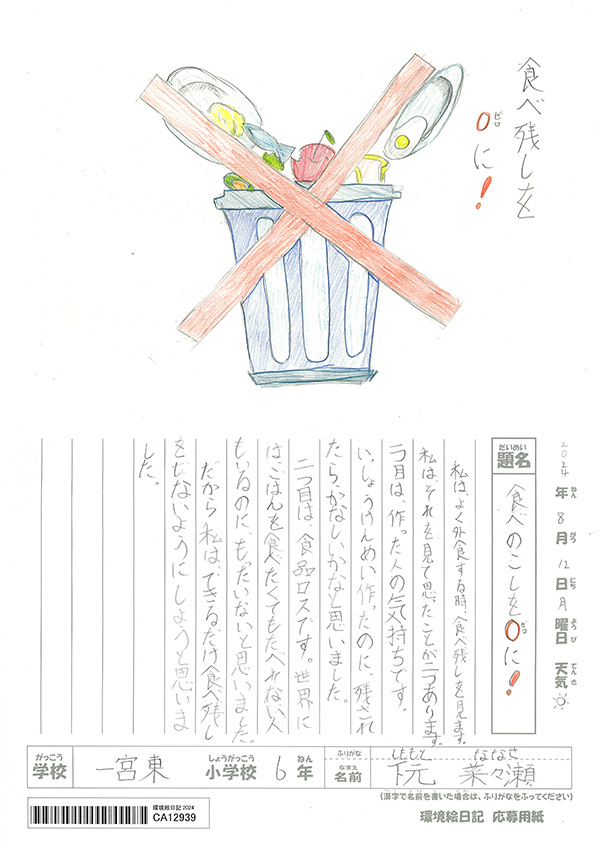 食べ残しを
0に!
ゼロ
2024年8月12日月曜日 天気
ねん がつ にち ようび てんき
だいめい
題名
食べのこしを0に!
ゼロ
私は、よく外食する時、食べ残しを見ます。
私は、それを見て思ったことが二つあります。
一つ目は、作った人の気持ちです。
いっしょうけんめい作ったのに、残され
たら、かなしいかなと思いました。
二つ目は、食品ロスです。世界に
はごはんを食べたくてもたべれない人
もいるのに、もったいないと思いました。
だから私は、できるだけ食べ残し
をしないようにしようと思いま
した。
がっこう しょうがっこう ねん ふりがな しももと ななせ
学校 一宮東 小学校 6年 なまえ 名前 下元 菜々瀬
(漢字で名前を書いた場合は、ふりがなをふってください)
環境絵日記 2024
CA12939
環境絵日記 応募用紙